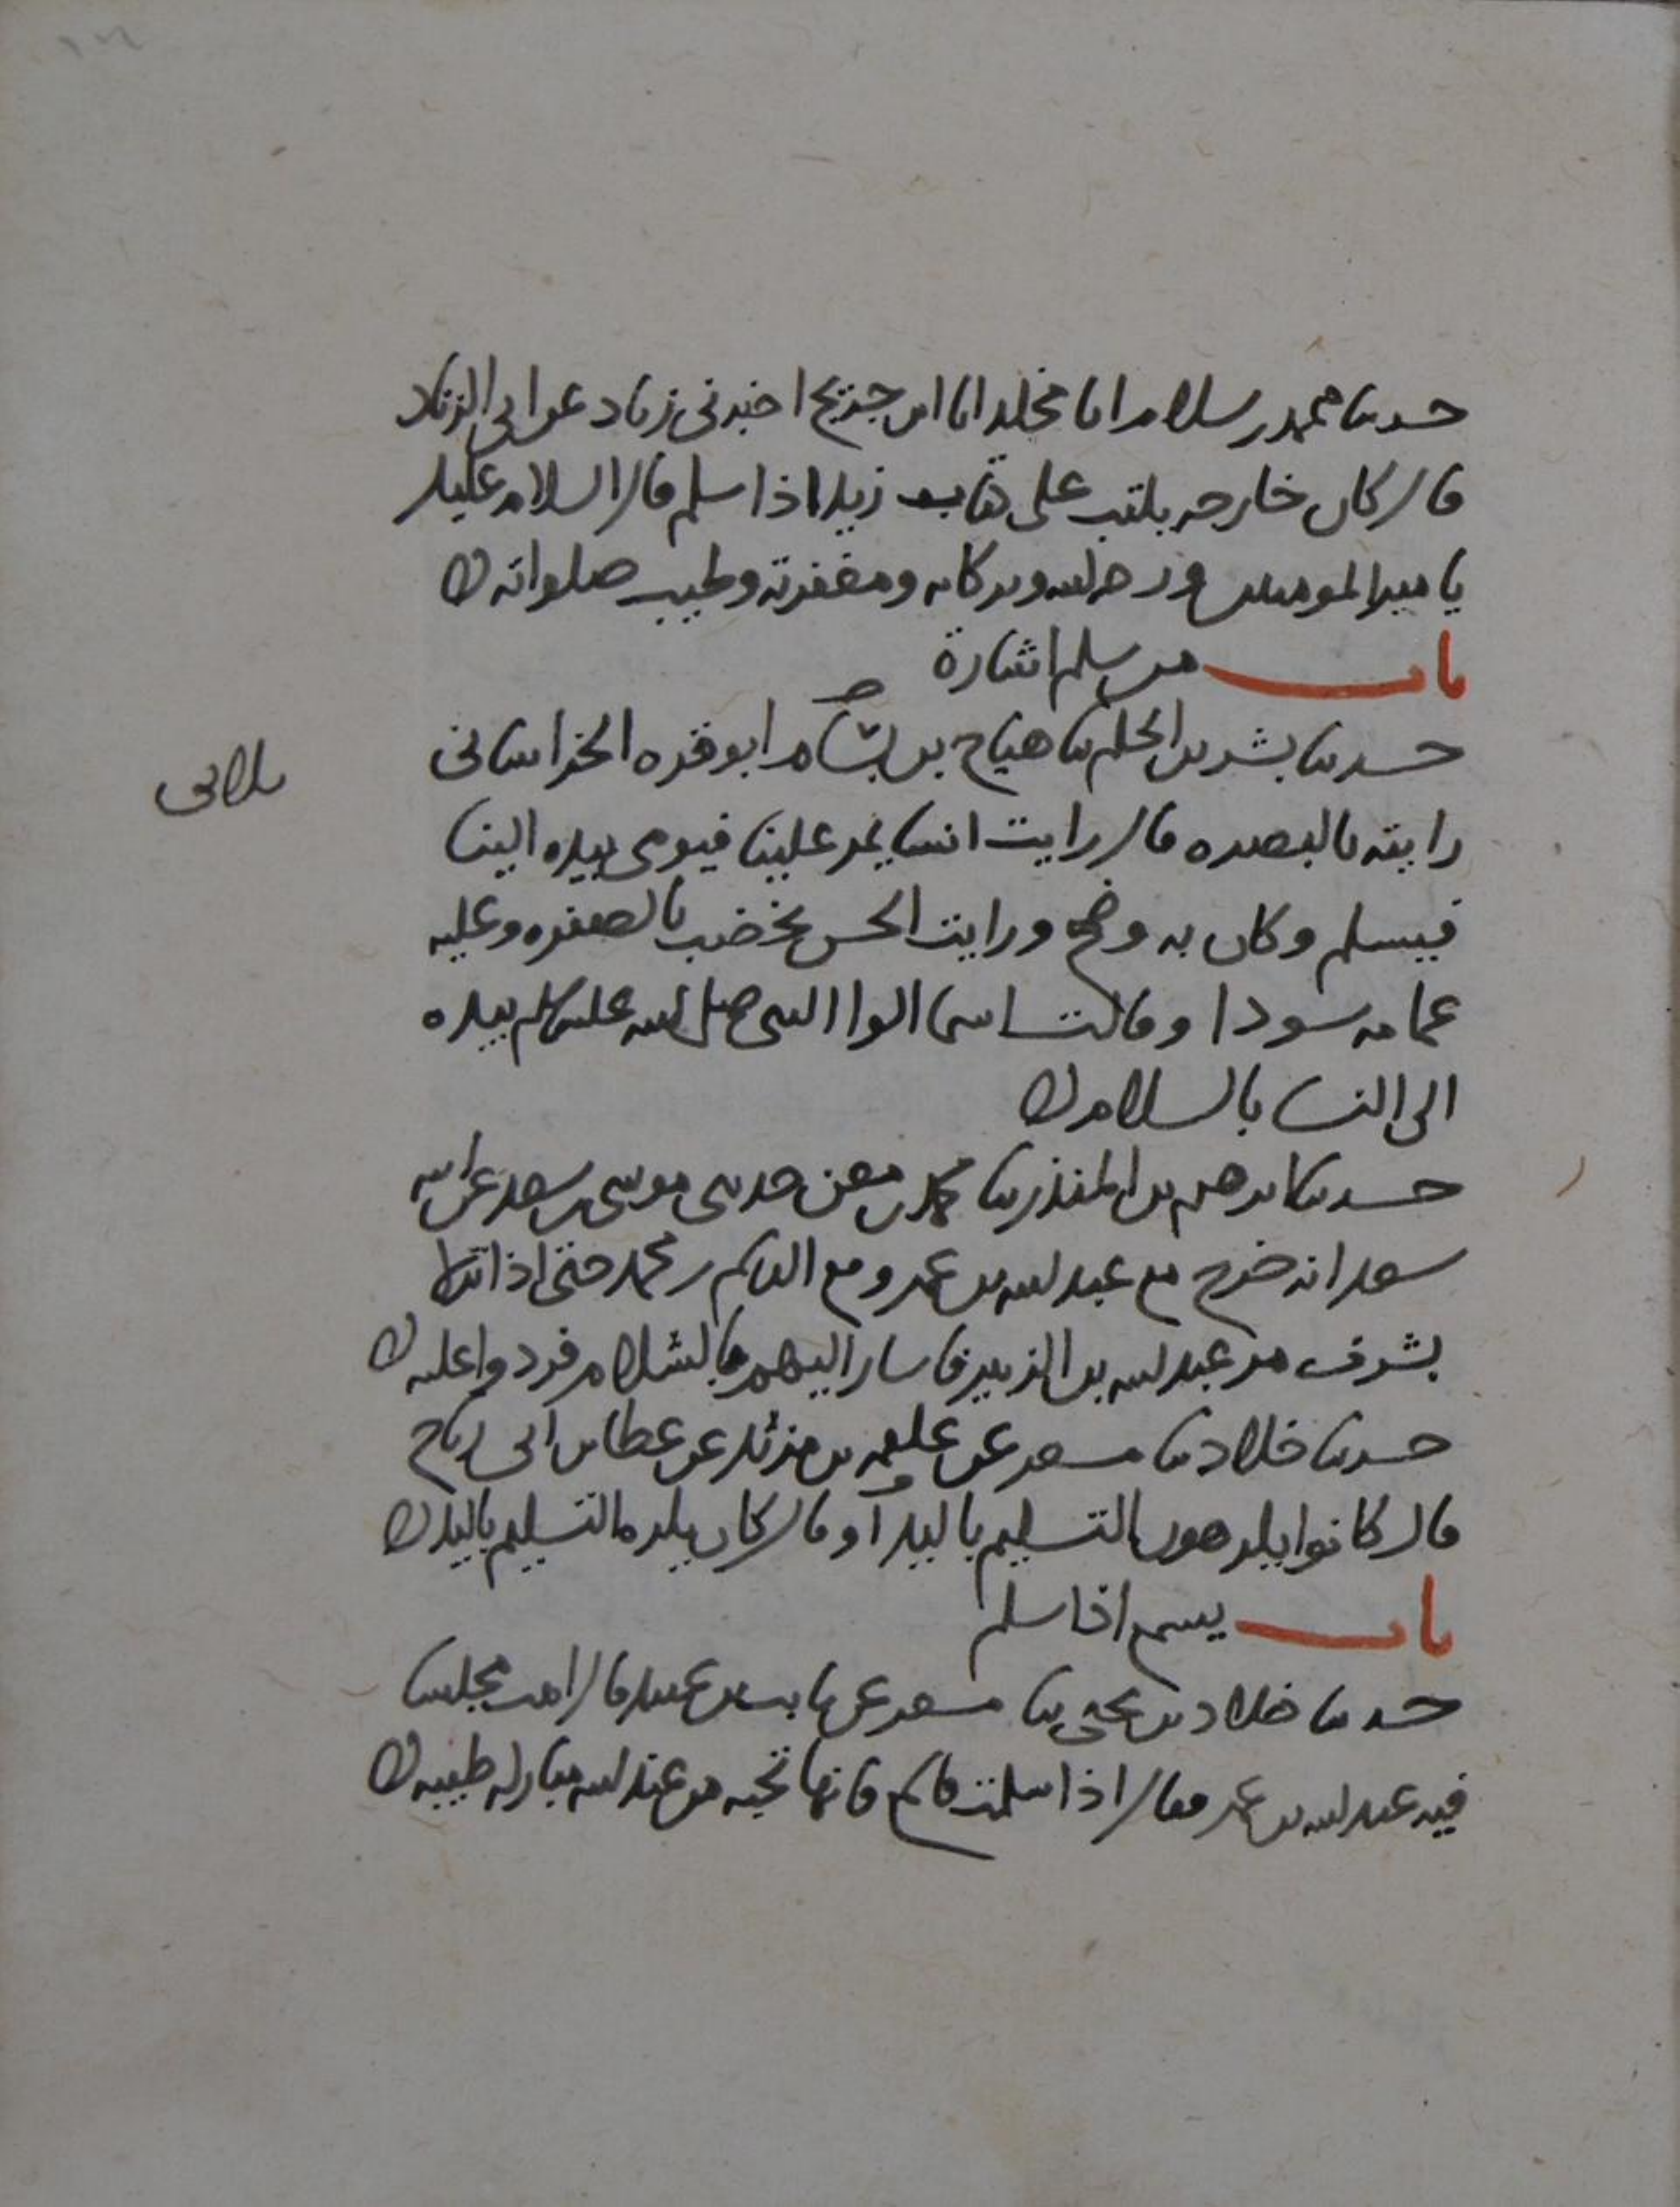 حدثنا محمد بن سلام انا مخلد انا ابن جريج اخبرني زياد عن ابي الزناد
قال كان خارجه يكتب على كتاب زيد اذا سلم قال السلام عليك
يا امير المومنين ورحمه الله وبركاته ومغفرته وطيب صلواته
باب من سلم اشارة
حدثنا بشر بن الحكم ثنا هياج بن بسام ابو قره الخراساني
رايته بالبصره قال رايت انسا يمر علينا فيومى بيده الينا
فيسلم وكان به وضح ورايت الحسن يخضب بالصفره وعليه
عمامه سودا وقالت اسما الوا النبي صلى الله عليه وسلم بيده
الى النسا بالسلام
حدثنا ابرهيم بن المنذر ثنا محمد بن معن حدثني موسى بن سعد عن ابيه
سعد انه خرج مع عبد الله بن عمر ومع القاسم بن محمد حتى اذا نزلا
بشرف مر عبد الله بن الزبير فاشار اليهم بالسلام فردوا عليه
حدثنا خلاد ثنا مسعر عن علقمه بن مرثد عن عطا بن ابي رباح
قال كانوا يكرهون التسليم باليد او قال كان يكره التسليم باليد
باب يسمع اذا سلم
حدثنا خلاد بن يحيى ثنا مسعر عن ثابت بن عبيد قال اتيت مجلسا
فيه عبد الله بن عمر فقال اذا سلمت فاسمع فانها تحيه من عند الله مباركه طيبه